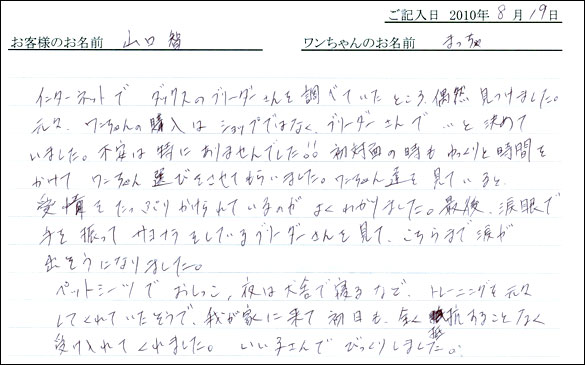 ご記入日 2010年 8月 19日
お客様のお名前 山口 智 ワンちゃんのお名前 まっちゃ
インターネットで ダックスのブリーダーさんを調べていたところ、偶然見つけました。
元々、ワンちゃんの購入はショップではなく、ブリーダーさんで…と決めて
いました。不安は特にありませんでした!! 初対面の時もゆっくりと時間を
かけて ワンちゃん選びをさせてもらいました。ワンちゃん達を見ていると、
愛情をたっぷりかけられているのが よくわかりました。最後、涙眼で
手を振って サヨナラをしているブリーダーさんを見て、こちらまで涙が
出そうになりました。
ペットシーツで おしっこ、夜は犬舎で寝るなど、トレーニングを元々
してくれていたそうで、我が家に来て初日も、全く抵抗することなく
受け入れてくれました。いい子さんで びっくりしました。